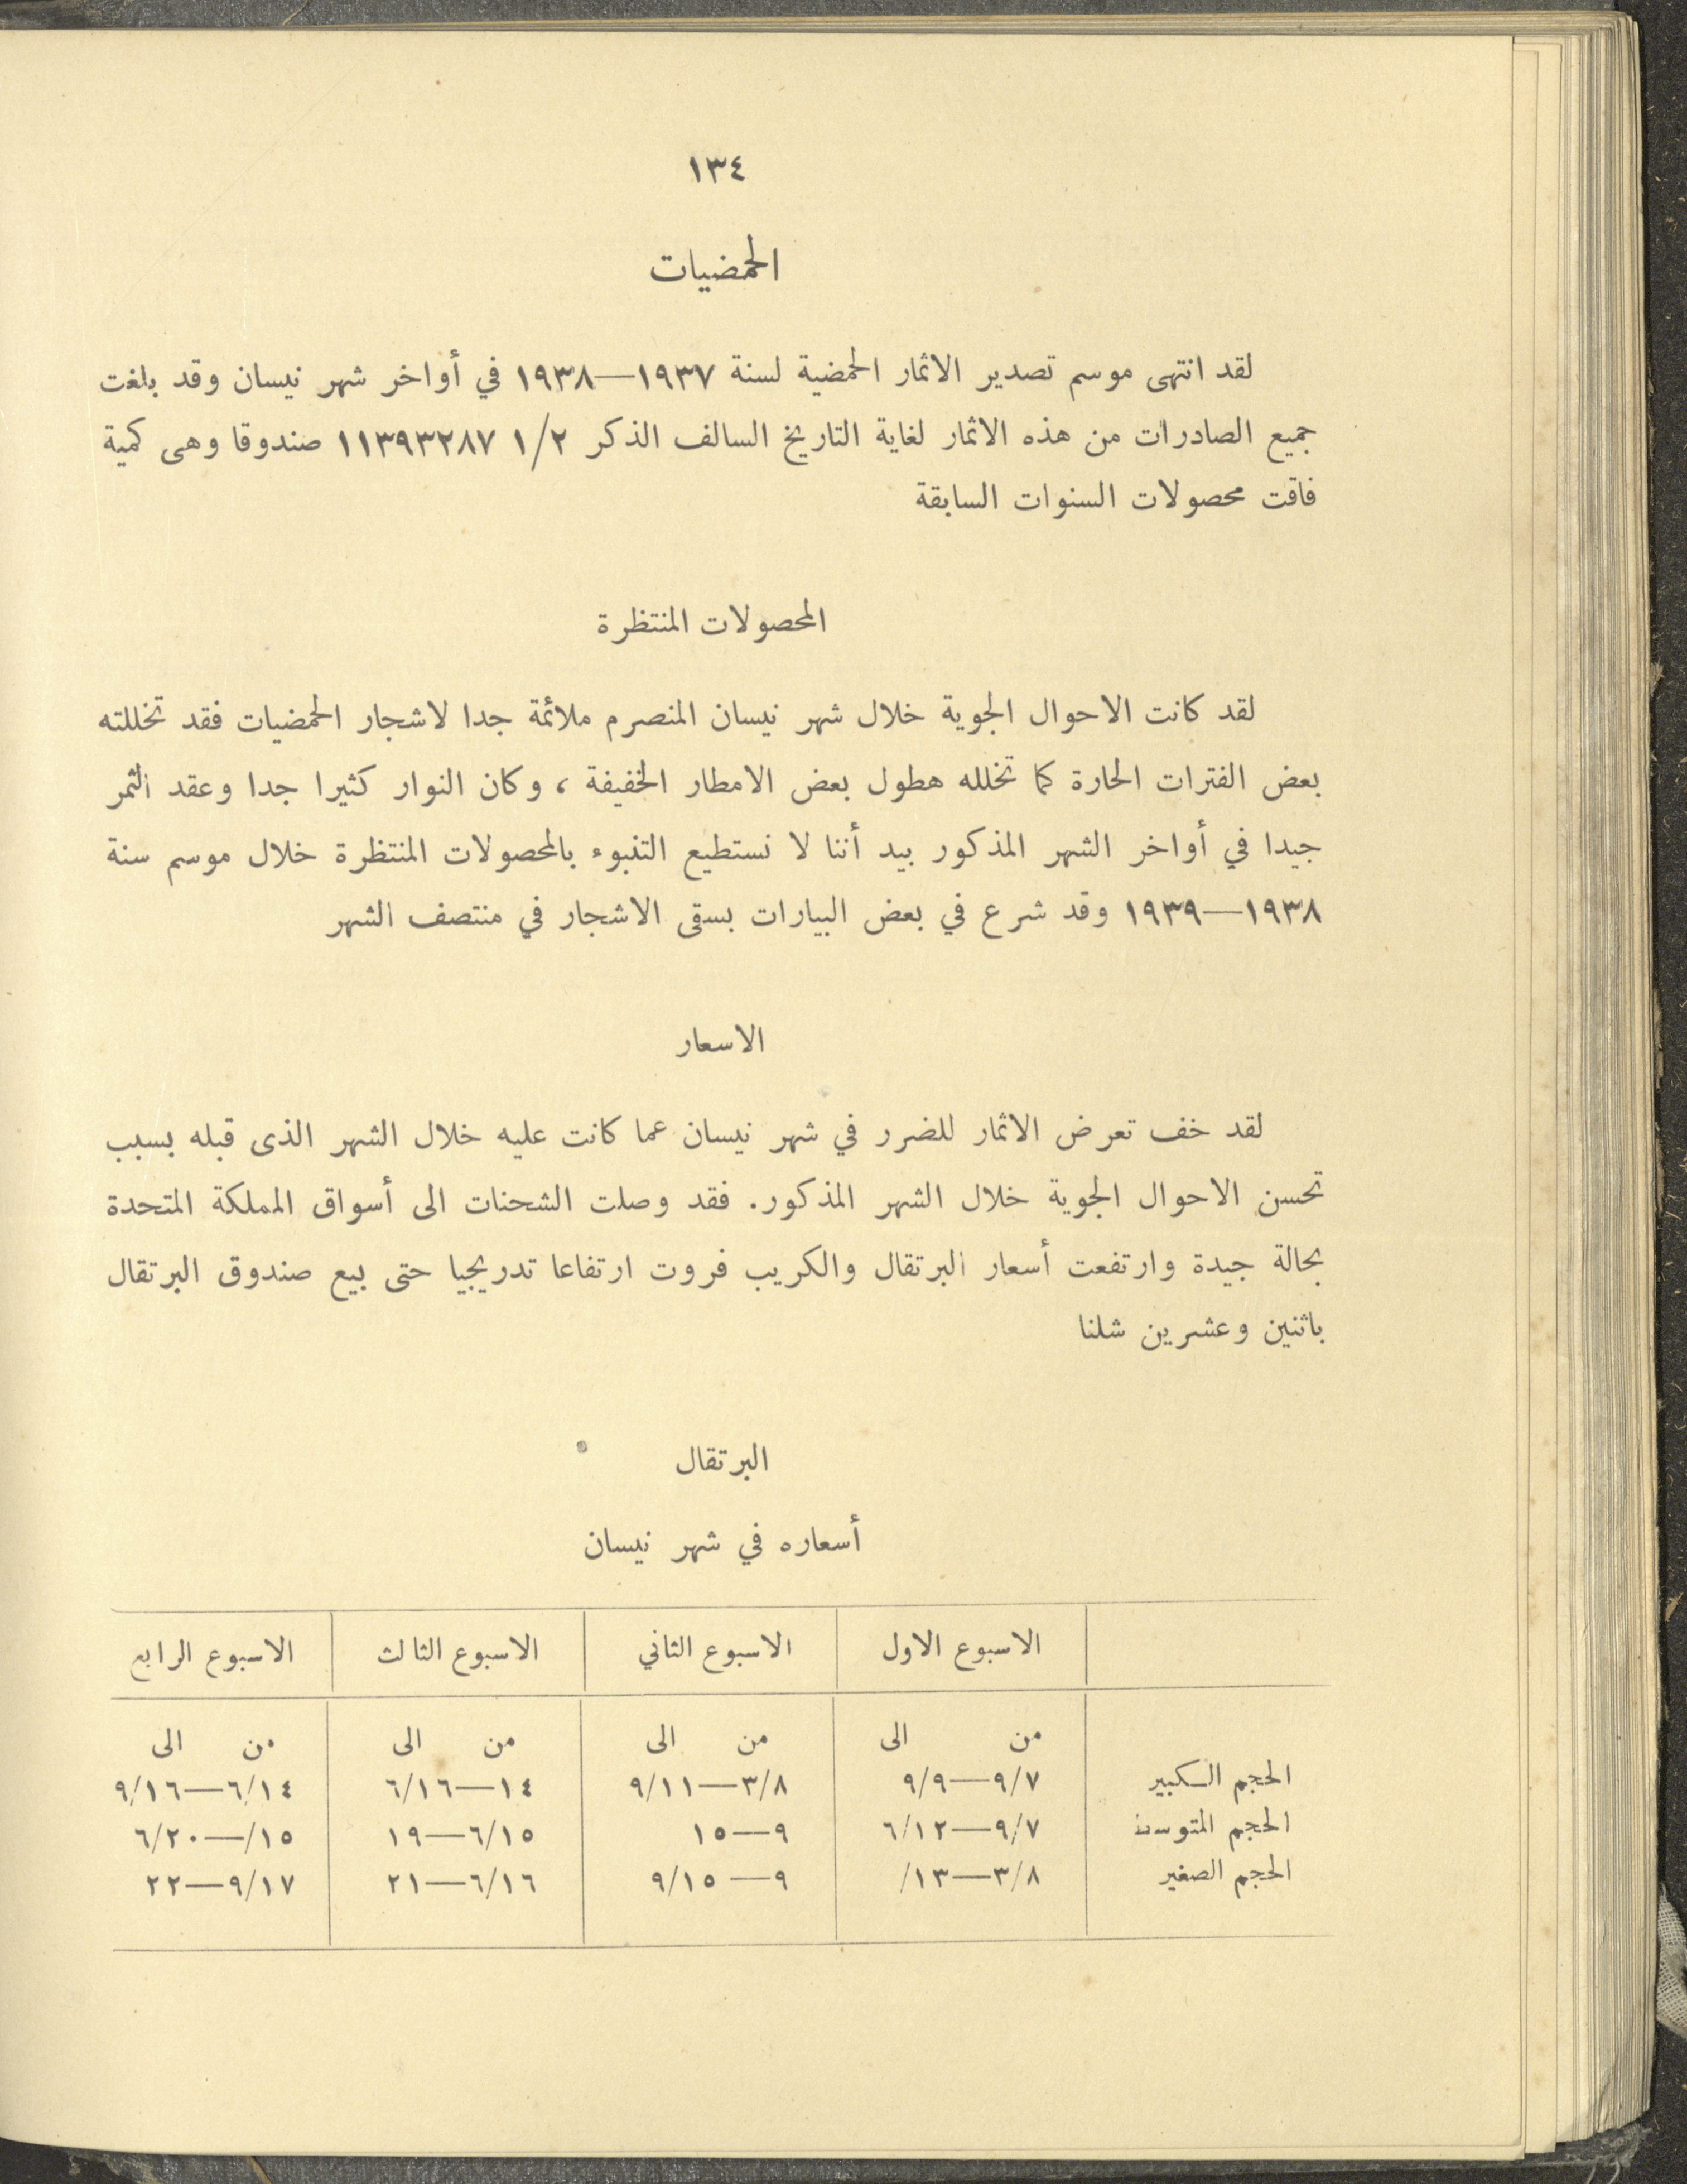 ١٣٤
الحمضيات
لقد انتهى موسم تصدير الاثمار الحمضية لسنة ١٩٣٧—١٩٣٨ في أواخر شهر نيسان وقد بلغت
جميع الصادرات من هذه الاثمار لغاية التاريخ السالف الذكر ١/٢ ١١٣٩٣٢٨٧ صندوقا وهى كمية
فاقت محصولات السنوات السابقة
المحصولات المنتظرة
لقد كانت الاحوال الجوية خلال شهر نيسان المنصرم ملائمة جدا لاشجار الحمضيات فقد تخللته
بعض الفترات الحارة كما تخلله هطول بعض الامطار الخفيفة ، وكان النوار كثيرا جدا وعقد الثمر
جيدا في أواخر الشهر المذكور بيد أننا لا نستطيع التنبوء بالمحصولات المنتظرة خلال موسم سنة
١٩٣٨—١٩٣٩ وقد شرع في بعض البيارات بسقى الاشجار في منتصف الشهر
الاسعار
لقد خف تعرض الاثمار للضرر في شهر نيسان عما كانت عليه خلال الشهر الذى قبله بسبب
تحسن الاحوال الجوية خلال الشهر المذكور. فقد وصلت الشحنات الى أسواق المملكة المتحدة
بحالة جيدة وارتفعت أسعار البرتقال والكريب فروت ارتفاعا تدريجيا حتى بيع صندوق البرتقال
باثنين وعشرين شلنا
البرتقال
أسعاره في شهر نيسان
الاسبوع الاول الاسبوع الثاني الاسبوع الثالث الاسبوع الرابع
من الى من الى من الى من الى
الحجم الكبير ٩/٧—٩/٩ ٣/٨—٩/١١ ١٤—٦/١٦ ٦/١٤—٩/١٦
الحجم المتوسط ٩/٧—٦/١٢ ٩—١٥ ٦/١٥—١٩ ١٥/—٦/٢٠
الحجم الصغير ٣/٨—١٣/ ٩—٩/١٥ ٦/١٦—٢١ ٩/١٧—٢٢